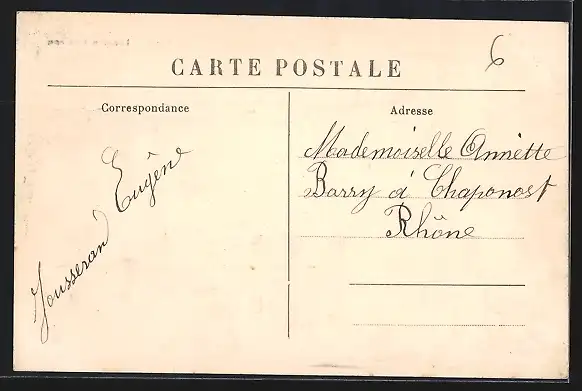 6
CARTE POSTALE
Correspondance
Adresse
Jousserand Eugène
Mademoiselle Annette
Barry à Chaponost
Rhône